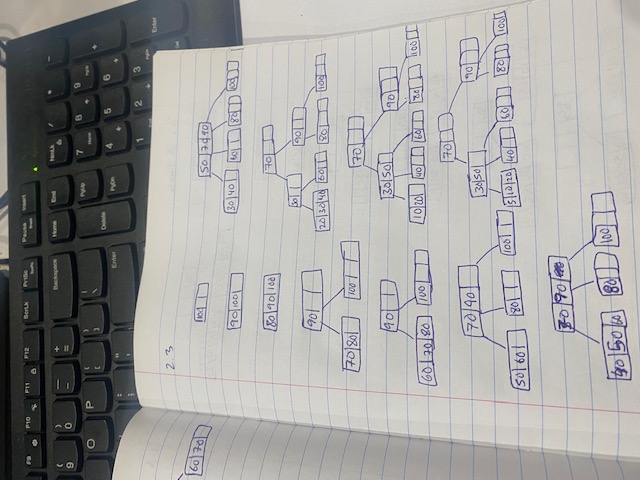 F9 F10 F11 F12 ScrLk PrtSc SysRq Pause Break Insert
( 9 ) 0 _ - + = Backspace Home End NmLk / * -
O P { [ } ] Delete PgUp PgDn 7 Home 8 9 PgUp +
Enter 4 5 6
3 PgDn Enter
60 70
2.3
100
90 100
80 90 100
90
70 80 100
90
60 70 80 100
70 90
50 60 80 100
70 90
40 50 60 80 100
50 70 90
30 40 60 80 100
70
50 90
20 30 40 60 80 100
70
30 50 90
10 20 40 60 80 100
70
30 50 90
5 10 20 40 60 80 100